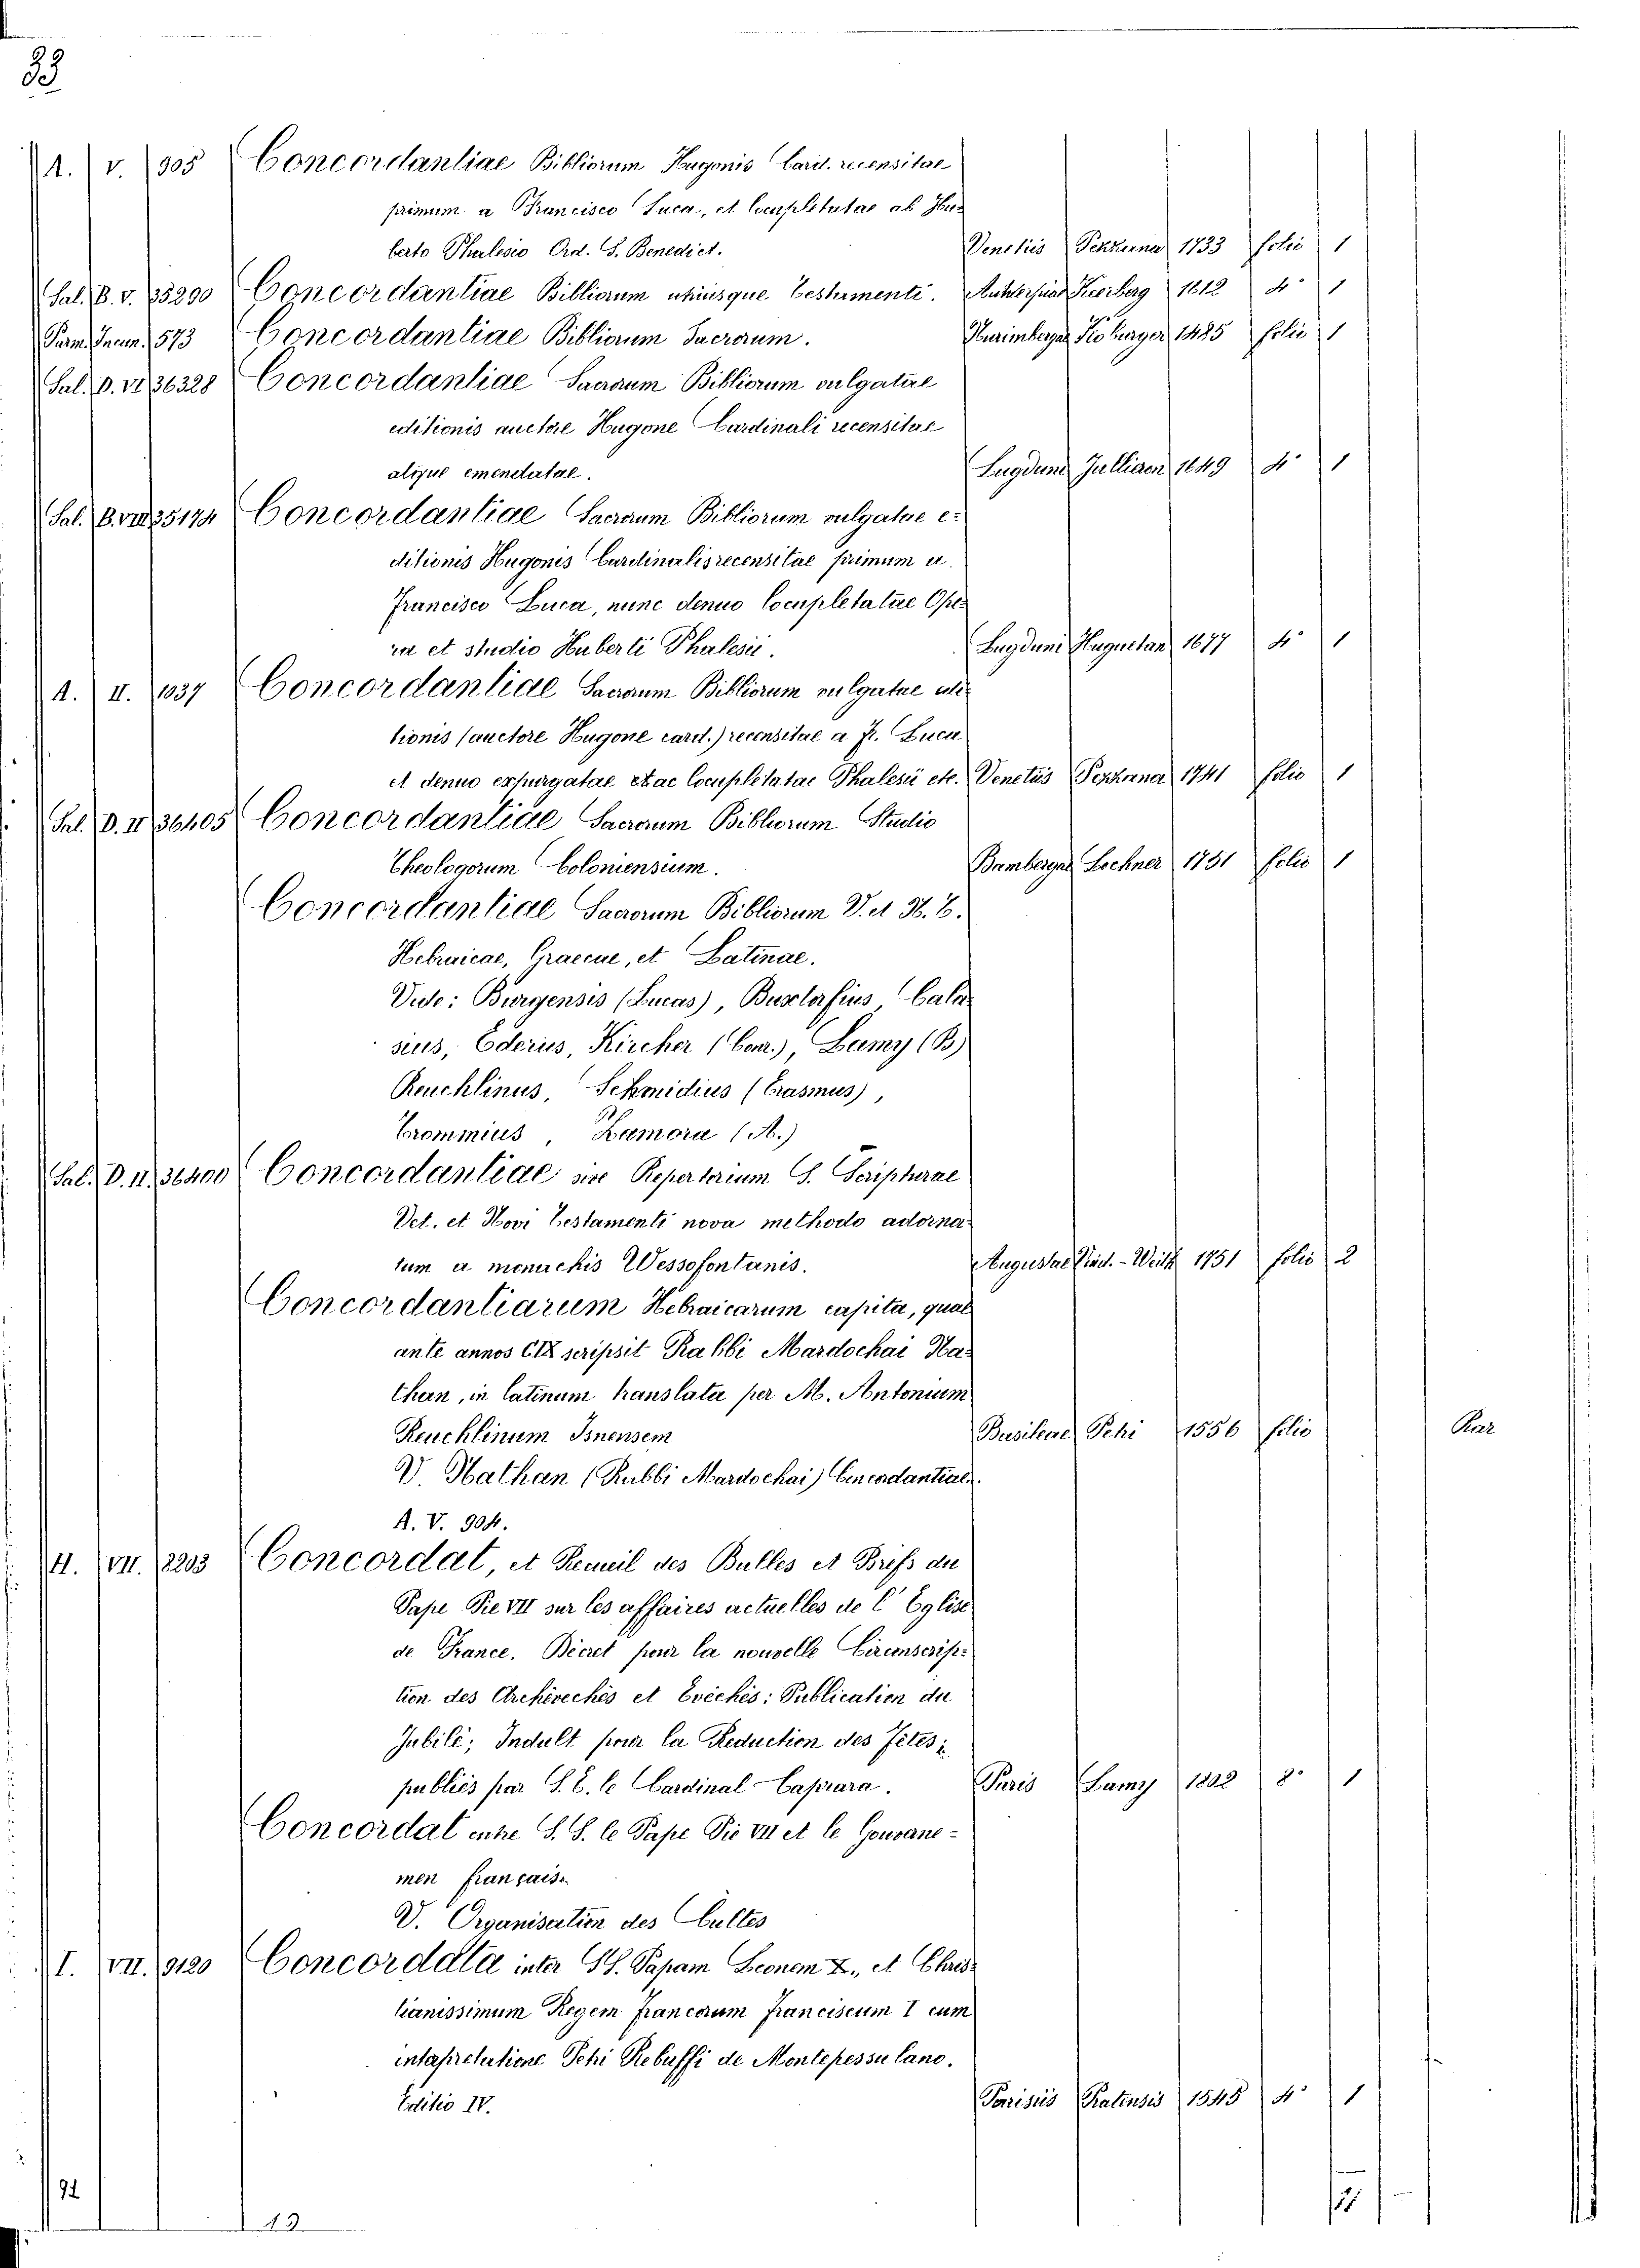 33
A. V. 905 Concordantiae Bibliorum Hugonis Card. recensitae
primum a Francisco Luca, et locupletatae ab Hu=
berto Phalesio Ord. S. Benedict. Venetiis Pezzana 1733 folio 1
Sal. B. V. 35290 Concordantiae Bibliorum utriusque Testamenti. Antverpiae Keerberg 1612 4° 1
Parm. Incun. 573 Concordantiae Bibliorum Sacrorum. Nurimbergae Koburger 1485 folio 1
Sal. D. VI 36328 Concordantiae Sacrorum Bibliorum vulgatae
editionis auctore Hugone Cardinali recensitae
atque emendatae. Lugduni Jullieron 1649 4° 1
Sal. B. VIII 35174 Concordantiae Sacrorum Bibliorum vulgatae e=
ditionis Hugonis Cardinalis recensitae primum a
Francisco Luca, nunc denuo locupletatae Ope=
ra et studio Huberti Phalesii. Lugduni Huguetan 1677 4° 1
A. II. 1037 Concordantiae Sacrorum Bibliorum vulgatae edi=
tionis (auctore Hugone card.) recensitae a fr. Luca
et denuo expurgatae et ac locupletatae Phalesii etc. Venetiis Pezzana 1741 folio 1
Sal. D. II 36405 Concordantiae Sacrorum Bibliorum Studio
Theologorum Coloniensium. Bambergae Lochner 1751 folio 1
Concordantiae Sacrorum Bibliorum V. et N. T.
Hebraicae, Graecae, et Latinae.
Vide: Burgensis (Lucas), Buxtorfius, Cala=
sius, Ederus, Kircher (Conr.), Lamy (B)
Reuchlinus, Schmidius (Erasmus),
Trommius, Zamora (A.)
Sal. D. II. 36400 Concordantiae sive Repertorium S. Scripturae
Vet. et Novi Testamenti nova methodo adorna=
tum a monachis Wessofontanis. Augustae Vind. - Weith 1751 folio 2
Concordantiarum Hebraicarum capita, quae
ante annos CIX scripsit Rabbi Mardochai Na=
than, in latinum translata per M. Antonium
Reuchlinum Isnensem Basileae Petri 1556 folio Rar
V. Nathan (Rabbi Mardochai) Concordantiae.
A. V. 904.
H. VII. 8203 Concordat, et Recueil des Bulles et Brefs du
Pape Pie VII sur les affaires actuelles de l'Eglise
de France. Décret pour la nouvelle Circonscrip=
tion des Archévechés et Evéchés: Publication du
Jubilé; Indult pour la Reduction des Fêtes;
publiés par S. E. le Cardinal Caprara. Paris Lamy 1802 8° 1
Concordat entre S. S. le Pape Pie VII et le Gouverne=
men français.
V. Organisation des Cultes
I. VII. 9120 Concordata inter SS. Papam Leonem X., et Chris=
tianissimum Regem Francorum Franciscum I cum
interpretatione Petri Rebuffi de Montepessulano.
Editio IV. Parisiis Pratensis 1545 4° 1
92